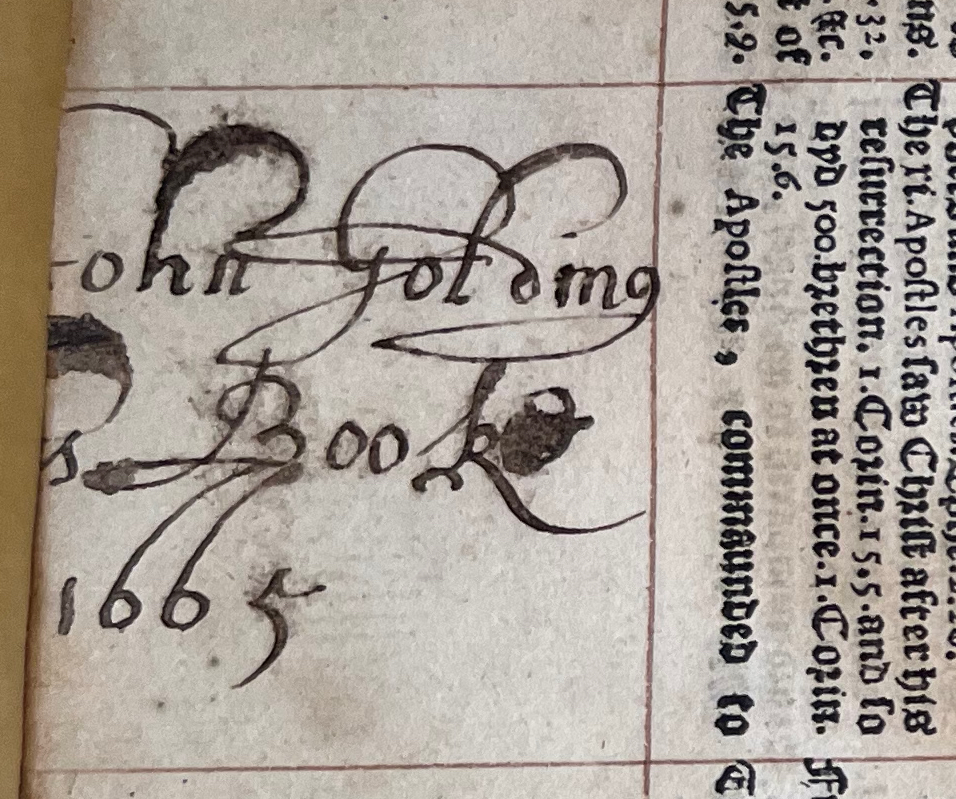 John Golding
s Booke
1665
ns. The xi. Apostles saw Christ after his
.32. resurrection, 1.Corin.15.5.and so
&c. vpō 500.brethren at once.1.Corin.
t of 15.6.
5.2. The Apostles, commaunded to